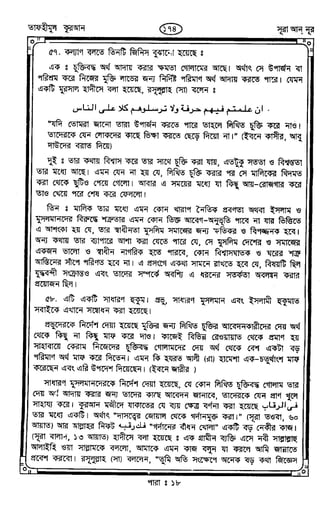 তাফহীমুল কুরআন
১৭৪
সূরা আন্ নূর
৫৭. কল্যাণ বলতে তিনটি জিনিস বুঝানো হয়েছে :
এক : চুক্তিবদ্ধ অর্থ আদায় করার ক্ষমতা গোলামের আছে। অর্থাৎ সে উপার্জন বা
পরিশ্রম করে নিজের মুক্তি লাভের জন্য নির্দিষ্ট পরিমাণ অর্থ আদায় করতে পারে। যেমন
একটি মুরসাল হাদীসে বলা হয়েছে, রসূলুল্লাহ (সা) বলেন :
ان علمتم فيهم حرفة ولا ترسلوهم كلا على الناس
"যদি তোমরা জানো তারা উপার্জন করতে পারে তাহলে লিখিত চুক্তি করে নাও।
তাদেরকে যেন লোকদের কাছে ভিক্ষা করতে ছেড়ে দিয়ো না।" (ইবনে কাসীর, আবু
দাউদের বরাত দিয়ে)
দুই : তার কথায় বিশ্বাস করে তার সাথে চুক্তি করা যায়, এতটুকু সততা ও বিশ্বস্ততা
তার মধ্যে আছে। এমন যেন না হয় যে, লিখিত চুক্তি করার পর সে মালিকের খিদমত
করা থেকে ছুটিও পেয়ে গেলো। আবার এ সময়ের মধ্যে যা কিছু আয়-রোজগার করে
তাও খেয়ে পরে শেষ করে ফেললো।
তিন : মালিক তার মধ্যে এমন কোন খারাপ নৈতিক প্রবণতা অথবা ইসলাম ও
মুসলমানদের বিরুদ্ধে শত্রুতার এমন কোন তিক্ত আবেগ-অনুভূতি পাবে না যার ভিত্তিতে
এ আশংকা হয় যে, তার স্বাধীনতা মুসলিম সমাজের জন্য ক্ষতিকর ও বিপজ্জনক হবে।
অন্য কথায় তার ব্যাপারে আশা করা যেতে পারে যে, সে মুসলিম দেশের ও সমাজের
একজন ভালো ও স্বাধীন নাগরিক হতে পারবে, কোন বিশ্বাসঘাতক ও ঘরের শত্রু
আস্তিনের সাঁপে পরিণত হবে না। এ প্রসংগে একথা সামনে রাখতে হবে যে, বিষয়টি ছিল
যুদ্ধবন্দী সংক্রান্তও এবং তাদের সম্পর্কে অবশ্যি এ ধরনের সতর্কতা অবলম্বন করার
প্রয়োজন ছিল।
৫৮. এটি একটি সাধারণ হুকুম। প্রভু, সাধারণ মুসলমান এবং ইসলামী হুকুমাত
সবাইকে এখানে সম্বোধন করা হয়েছে।
প্রভুদেরকে নির্দেশ দেয়া হয়েছে মুক্তির জন্য লিখিত চুক্তির আবেদনকারীদের দেয় অর্থ
থেকে কিছু না কিছু মাফ করে দাও। কাজেই বিভিন্ন রেওয়ায়াত থেকে প্রমাণ হয়
সাহাবায়ে কেরাম নিজেদের চুক্তিবদ্ধ গোলামদের দেয় অর্থ থেকে বেশ একটা বড়
পরিমাণ অর্থ মাফ করে দিতেন। এমন কি হযরত আলী (রা) হামেশা এক-চতুর্থাংশ মাফ
করেছেন এবং এরি উপদেশ দিয়েছেন। (ইবনে জারীর)
সাধারণ মুসলমানদেরকে নির্দেশ দেয়া হয়েছে, যে কোন লিখিত চুক্তিবদ্ধ গোলাম তার
দেয় অর্থ আদায় করার জন্য তাদের কাছে আবেদন জানাবে, তাদেরকে যেন প্রাণ খুলে
সাহায্য করে। কুরআন মজীদে যাকাতের যে ব্যয় ক্ষেত্র বর্ণনা করা হয়েছে فى الرقاب
তার মধ্যে একটি। অর্থাৎ "দাসত্বের জোয়াল থেকে গর্দানমুক্ত করা।" (সূরা তওবা, ৬০
আয়াত) আর আল্লাহর নিকট فك رقبة "গর্দানের বাঁধন খোলা" একটি বড় নেকীর কাজ।
(সূরা বালাদ, ১৩ আয়াত) হাদীসে বলা হয়েছে : এক গ্রামীন ব্যক্তি এসে নবী সাল্লাল্লাহু
আলাইহি ওয়া সাল্লামকে বললো, আমাকে এমন কাজ বলুন যা করলে আমি জান্নাতে
প্রবেশ করবো। রসূলুল্লাহ (সা) বললেন, "তুমি অতি সংক্ষেপে অনেক বড় কথা জিজ্ঞেস
পারা : ১৮